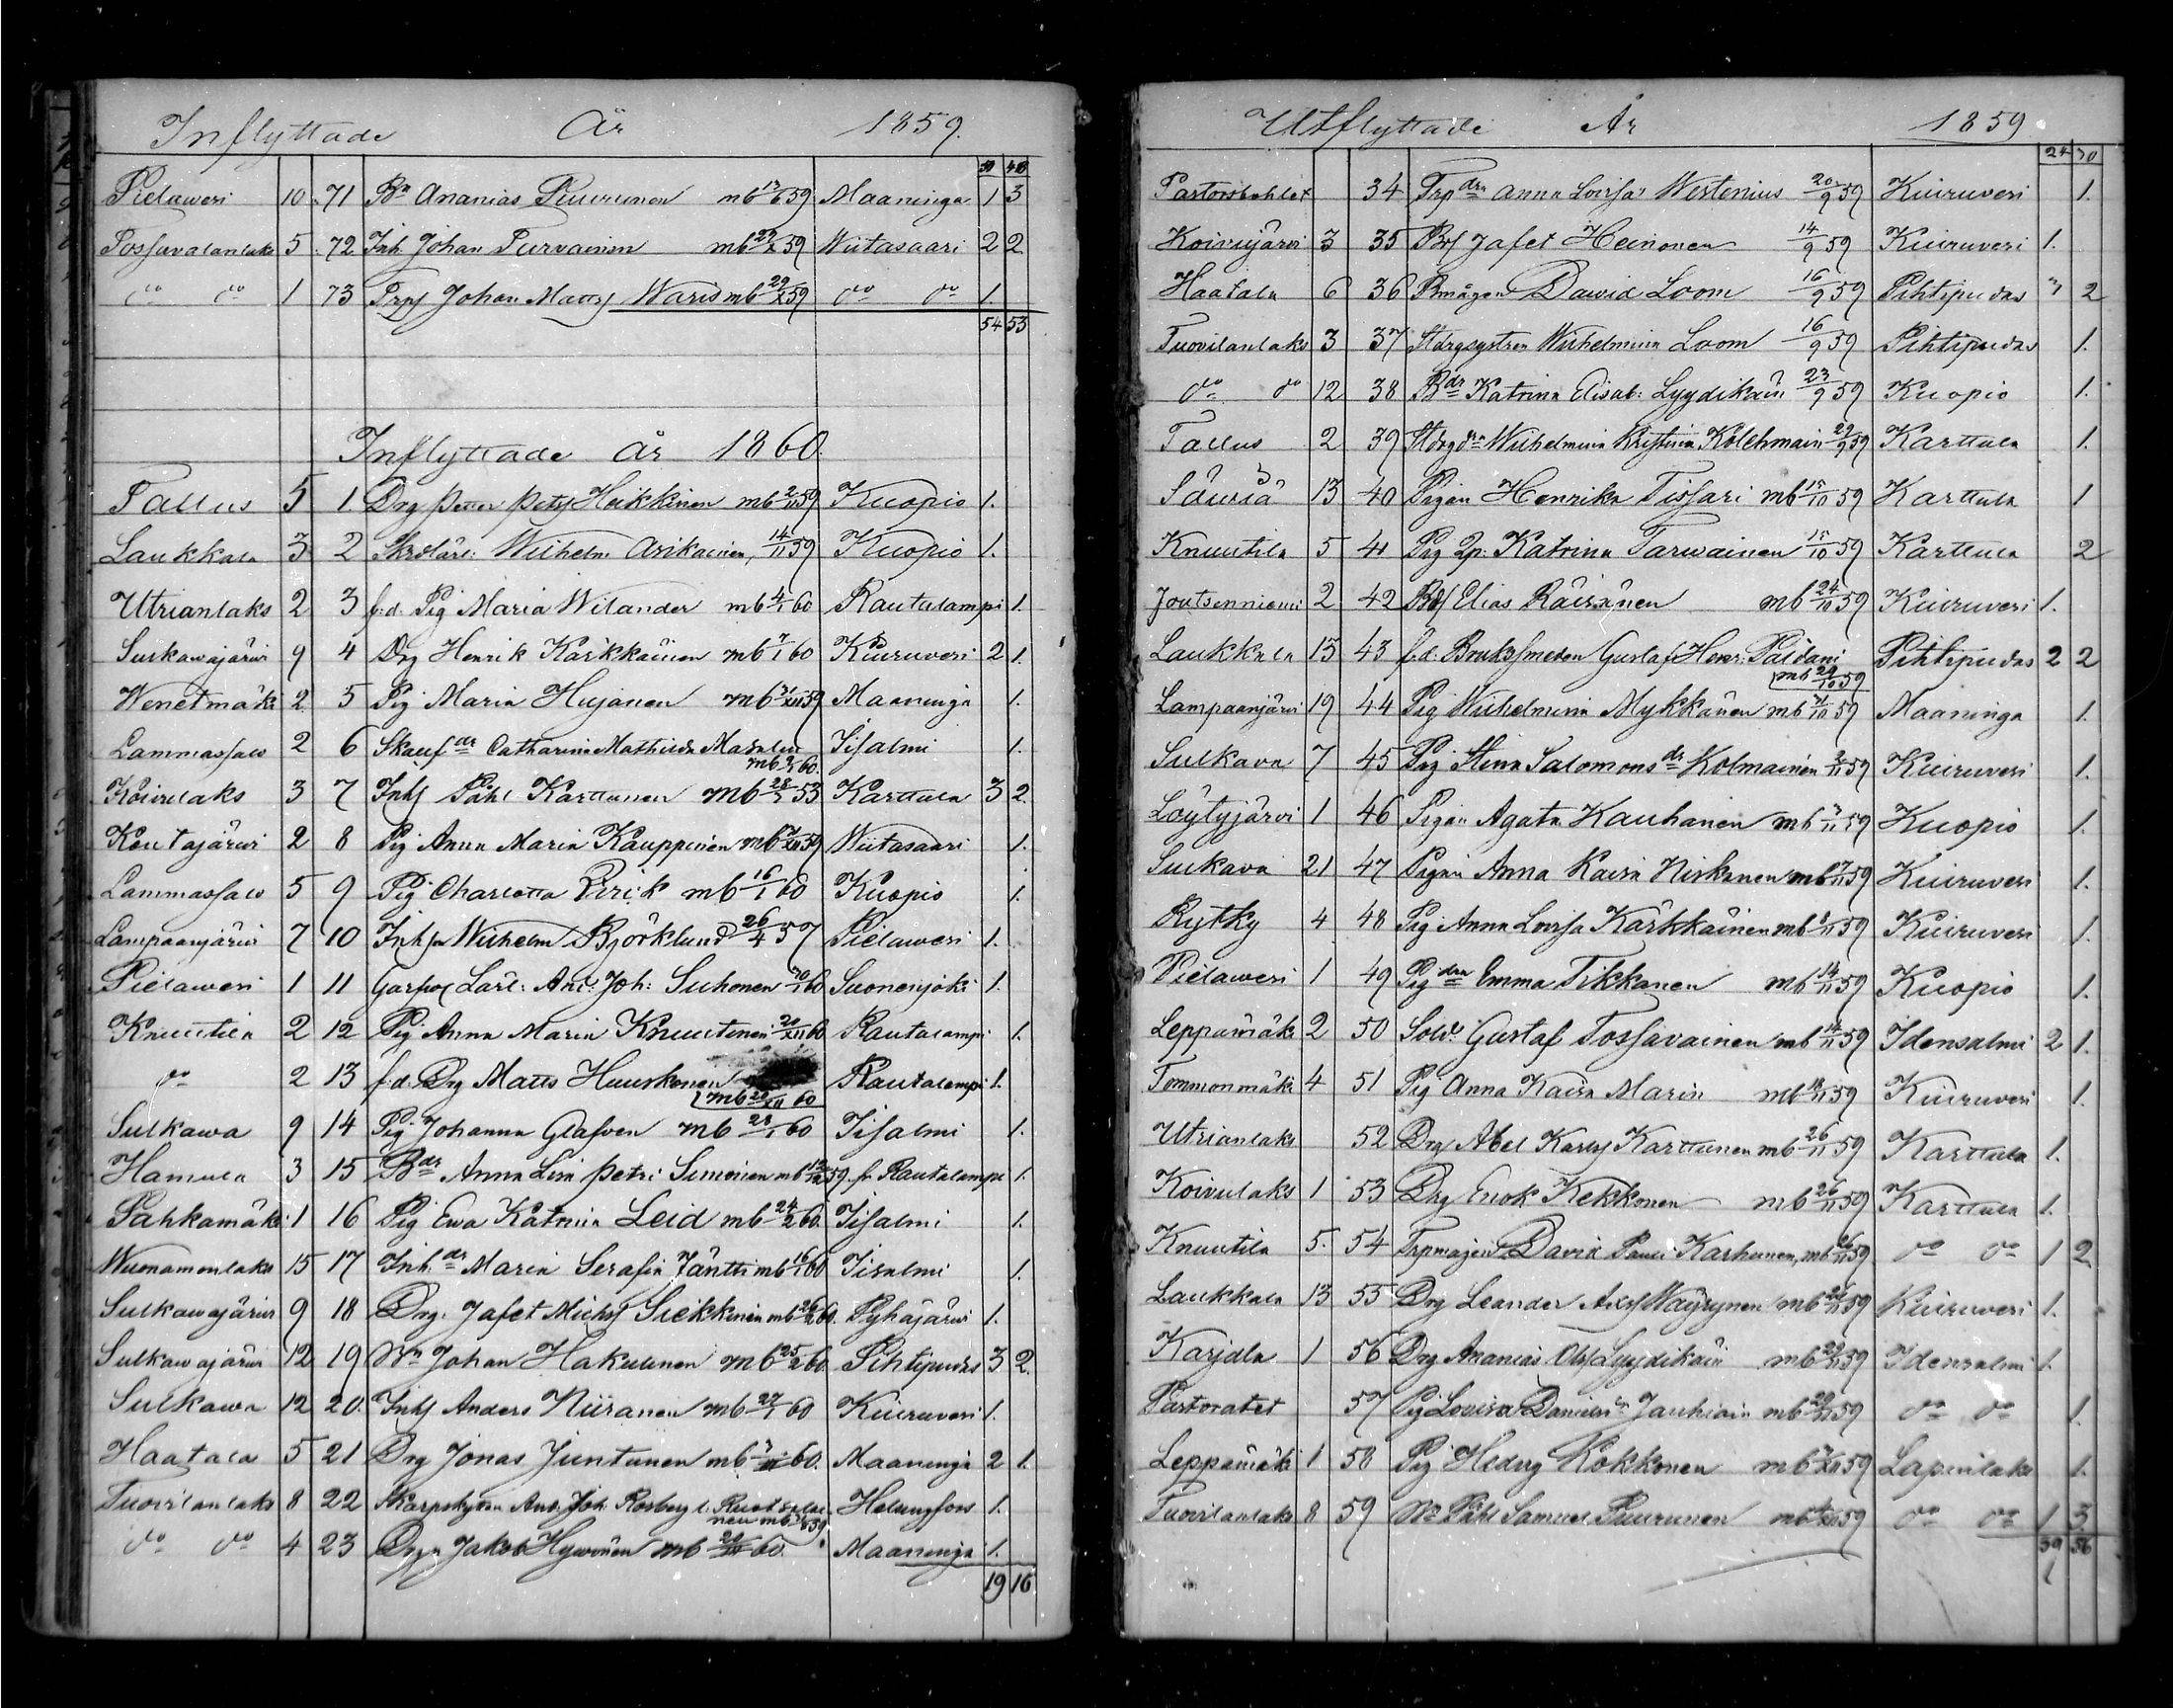 Inflyttade År 1859.
50 48
Pielaweri 10 71 Bn Ananias Ruurunen mb 13/6 59 Maaninga 1 3
Tossavalanlaks 5 72 Inh Johan Purvainen mb 29/X 59 Wiitasaari 2 2
do do 1 73 Trpf Johan Mattsf Waris mb 29/X 59 do do 1.
54 53
Inflyttade år 1860.
Tallus 5 1. Drg Petter Petsf Heikkinen mb 2/11 59 Kuopio 1.
Laukkala 3 2 Skrdlärl: Wilhelm Asikainen, 14/11 59 Kuopio 1.
Utrianlaks 2 3 f:d. Pig Maria Wilander mb 4/1 60 Rautalampi 1.
Sulkawajärwi 9 4 Drg Henrik Karkkäinen mb 7/1 60 Kiuruveri 2 1.
Wenetmäki 2 5 Pig Maria Hujanen mb 31/XII 59 Maaninga 1.
Lammassalo 2 6 Skauf dr Catharina Mathilda Masalin Iisalmi 1.
mb 9/1 60.
Koivulaks 3 7 Inhf Påhl Karttunen mb 28/2 53 Karttula 3 2.
Koutajärwi 2 8 Pig Anna Maria Kauppinen mb /XII 59 Wiitasaari 1.
Lammassalo 5 9 Pig Charlotta Eirik mb 16/1 60 Kuopio 1.
Lampaanjärwi 7 10 Inhsn Wilhelm Björklund 26/4 57 Pielaweri 1.
Pielaweri 1 11 Garfvarl Lärl: And: Joh: Suhonen 30/1 60 Suonenjoki 1.
Knuutila 2 12 Pig Anna Maria Knuutinen 20/XII 60 Rautalampi 1.
do 2 13 f.d. Drg Matts Huuskonen Rautalampi 1.
mb 20/XII 60
Sulkawa 9 14 Pig Johanna Glafven mb 28/1 60 Iisalmi 1.
Hamula 3 15 Bdr Anna Lisa Petri Simonen mb 12/XII 59. fr Rautalampi 1.
Pahkamäki 1 16 Pig Ewa Katrina Leid mb 24/2 60. Iisalmi 1.
Wuonamonlaks 15 17 Inh dr Maria Serafia Jäntti mb 16/1 60 Iisalmi 1.
Sulkawajärwi 9 18 Drg. Jafet Michsf Siekkinen mb 26/2 60. Pyhäjärwi 1.
Sulkawajärwi 12 19 Bn Johan Hakulinen mb 25/2 60. Pihtipudas 3 2.
Sulkawa 12 20. Inhf Anders Niiranen mb 27/1 60 Kiuruveri 1.
Haatala 5 21 Drg Jonas Juntunen mb 3/III 60. Maaninga 2 1.
Tuovilanlaks 8 22 Skarpskytten And: Joh. Rosberg l. Ruotsalai Helsingfors 1.
nen mb 59.
do do 4 23 Drgn Jakob Hyvönen mb 20/III 60. Maaninga 1.
19 16

Utflyttade År 1859
24 30
Pastorsbohlet 34 Trp drn Anna Lovisa Westenius 20/9 59 Kiuruveri 1.
Koivujärvi 3 35 Bsf Jafet Heinonen 14/9 59 Kiuruveri 1.
Haatala 6 36 Bmågen Dawid Loom 16/9 59 Pihtipudas " 2
Tuovilanlaks 3 37 Stdrgsystren Wilhelmina Loom 16/9 59 Pihtipudas 1.
do do 12 38 Bdr Katrina Elisab: Lyydikäin 23/9 59 Kuopio 1.
Tallus 2 39 Stdrg drn Wilhelmina Kristina Kolehmain 29/9 59 Karttula 1.
Säviä 13 40 Pigan Henrika Tissari mb 15/10 59 Karttula 1
Knuutila 5 41 Pig Qp: Katrina Tarwainen 15/10 59 Karttula 2
Joutsenniemi 2 42 Bsf Elias Räisänen mb 24/10 59 Kiuruveri 1.
Laukkala 13 43 f.d. Bruksmeden Gustaf Henr: Paldani Pihtipudas 2 2
mb 29/10 59
Lampaanjärvi 19 44 Pig Wilhelmina Mykkänen mb 31/10 59 Maaninga 1.
Sulkava 7 45 Pig Stina Salomons dr Kolmainen 2/11 59 Kiuruveri 1.
Löytyjärvi 1 46 Pigan Agata Kauhanen mb 3/11 59 Kuopio 1.
Sulkava 21 47 Pigan Anna Kaisa Niskanen mb 7/11 59 Kiuruveri 1.
Rytky 4 48 Pig Anna Lovisa Kärkkäinen mb 8/11 59 Kiuruveri 1.
Pielaweri 1 49 Pig drn Emma Tikkanen mb 14/11 59 Kuopio 1.
Leppämäki 2 50 Sold. Gustaf Tossavainen mb 14/11 59 Idensalmi 2 1.
Tommonmäki 4 51 Pig Anna Kaisa Marin mb 18/11 59 Kiuruveri 1.
Utrianlaks 52 Drg Abel Karlsf Karttunen mb 26/11 59 Karttula 1.
Koivulaks 1 53 Drg Enok Kekkonen mb 26/11 59 Karttula 1.
Knuutila 5. 54 Trpmågen David Pauli Karhunen, mb 26/11 59 do do 1 2
Laukkala 13 55 Drg Leander Axelsf Wäyrynen mb 26/11 59 Kiuruveri 1.
Karjala 1 56 Drg Ananias Olsf Lyydikäin mb 29/11 59 Idensalmi 1.
Pastoratet 57 Pig Lovisa Daniels dr Jauhiain mb 29/11 59 do do 1.
Leppämäki 1 58 Pig Hedvig Kokkonen mb /XII 59 Lapinlaks 1.
Tuovilanlaks 8 59 Bn Påhl Samuel Ruurunen mb /XII 59 do do 1 3
39 56